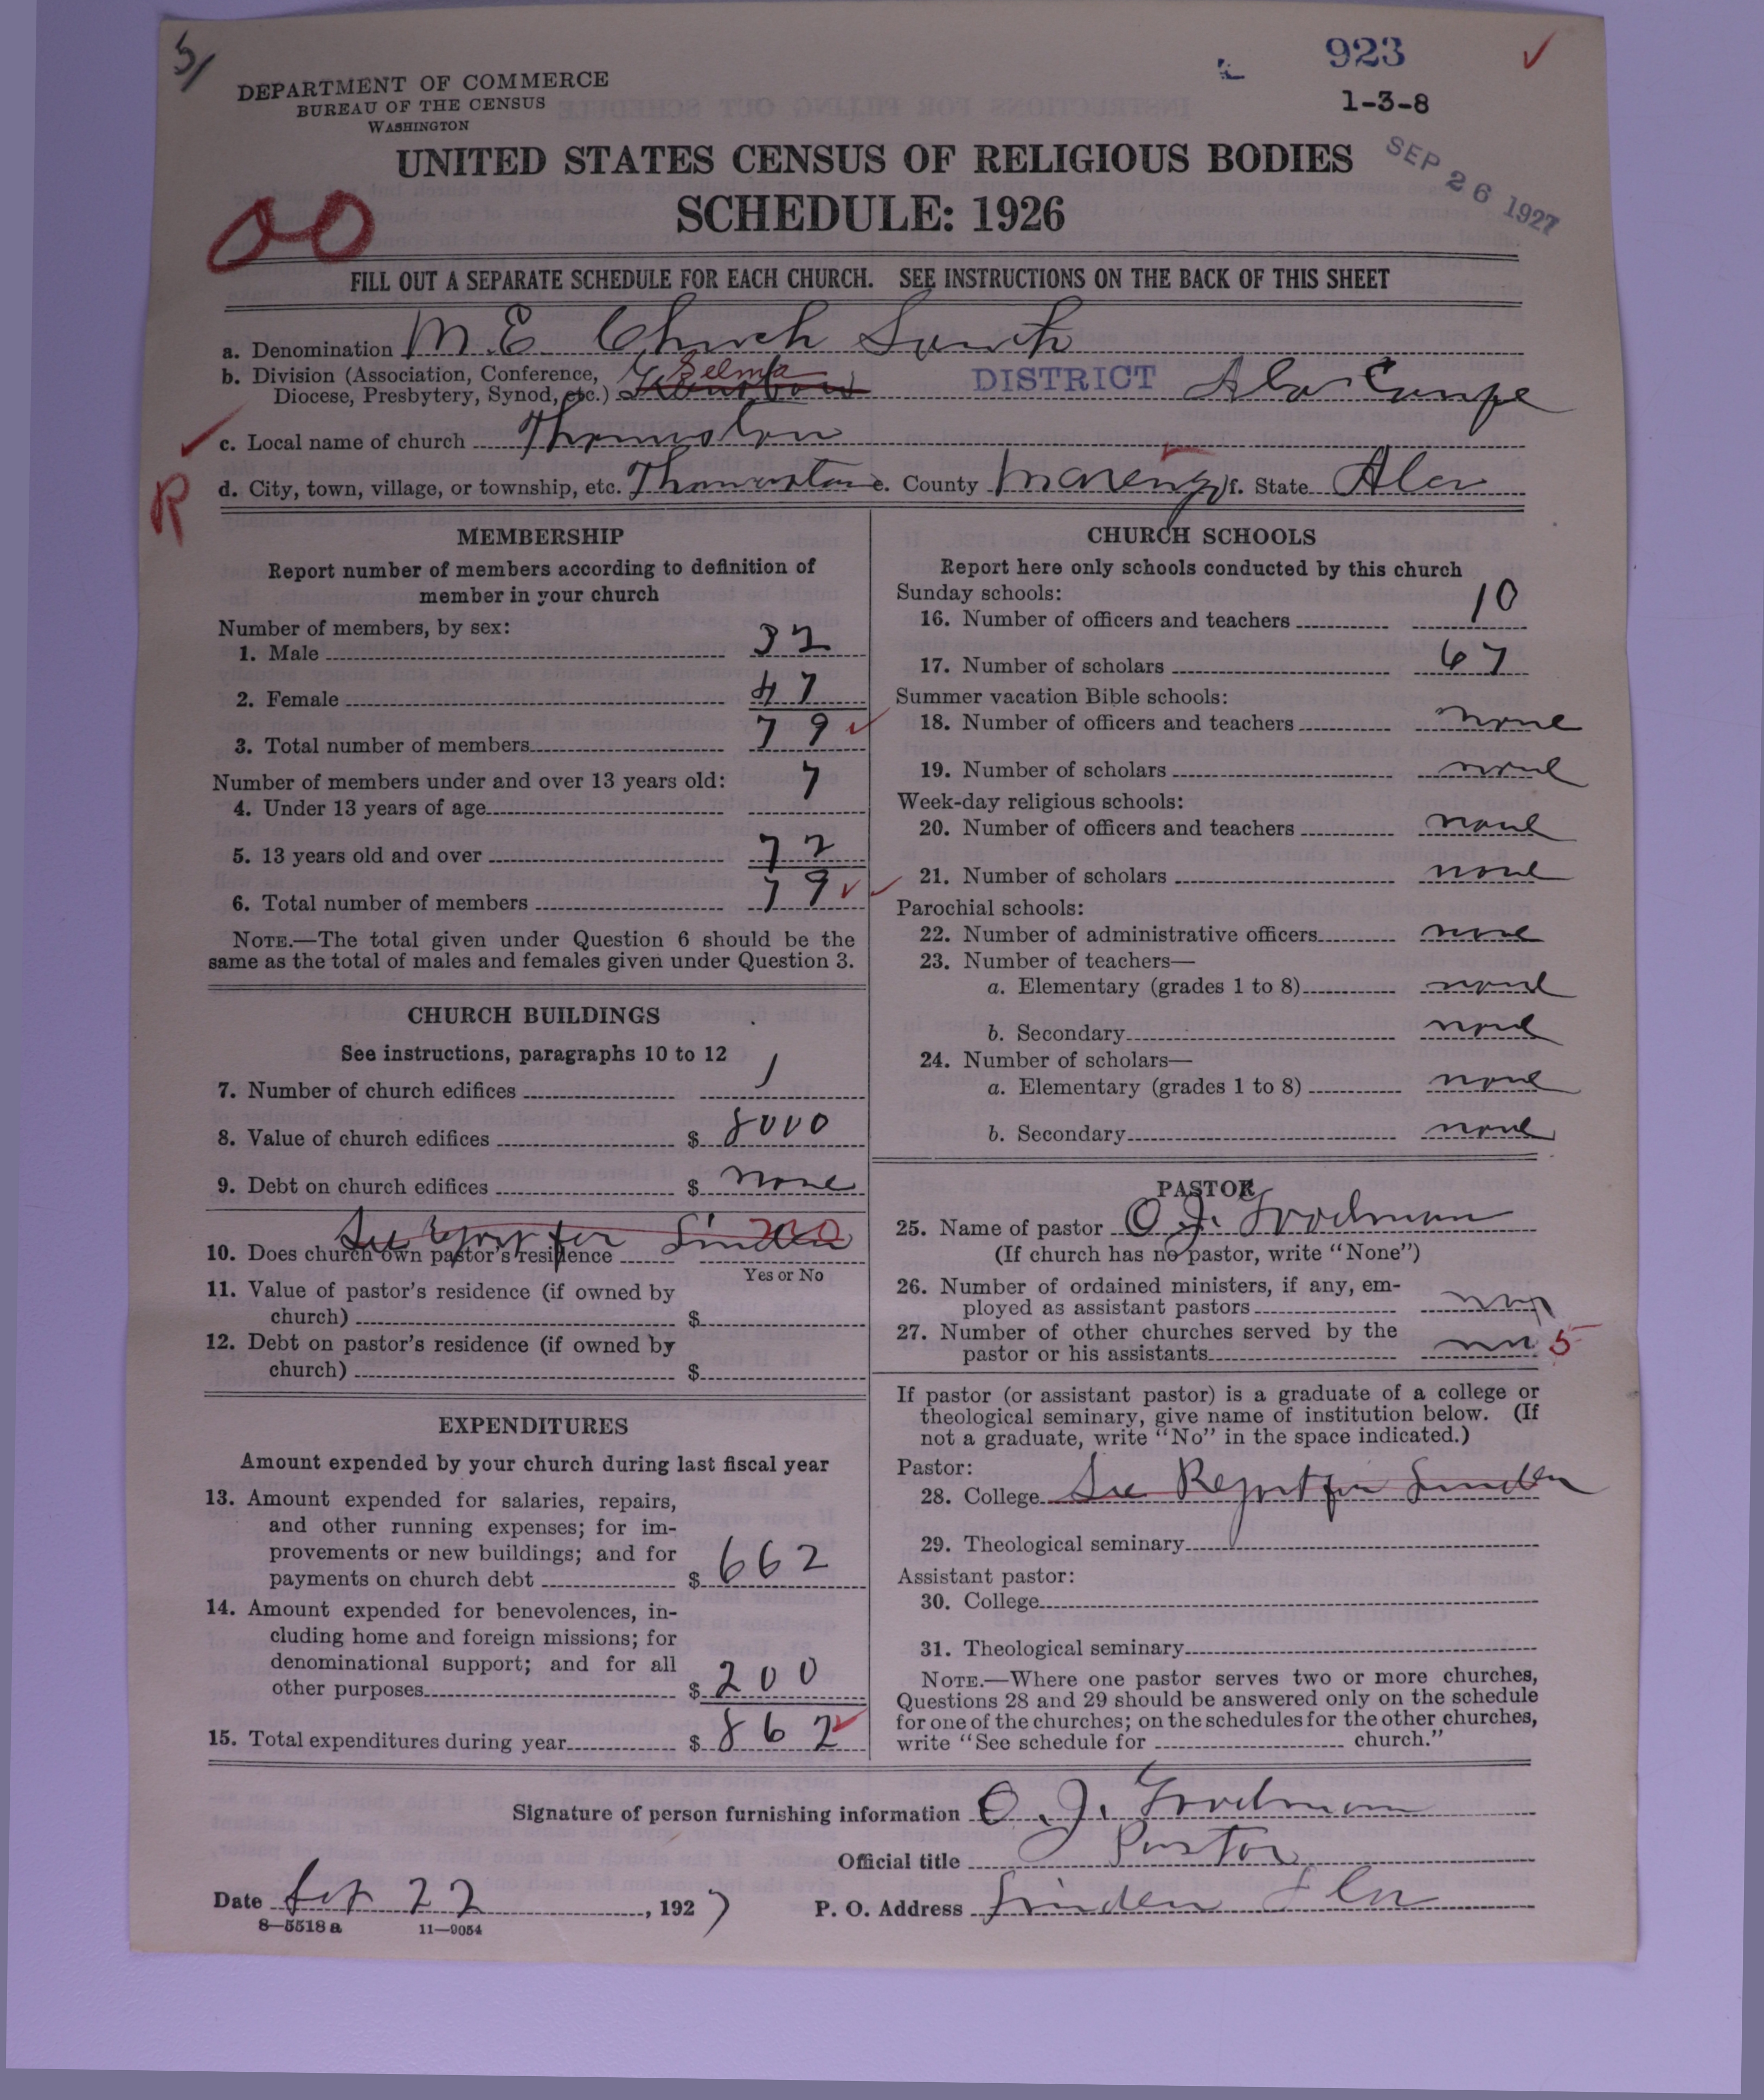 5/
923
1-3-8
SEP 26 1927
DEPARTMENT OF COMMERCE
BUREAU OF THE CENSUS
WASHINGTON
UNITED STATES CENSUS OF RELIGIOUS BODIES
SCHEDULE: 1926
00
FILL OUT A SEPARATE SCHEDULE FOR EACH CHURCH. SEE INSTRUCTIONS ON THE BACK OF THIS SHEET
a. Denomination M.E. Church South
b. Division (Association, Conference, Selma
Diocese, Presbytery, Synod, etc.) DISTRICT Ala Conf
c. Local name of church Thomaston
R
d. City, town, village, or township, etc. Thomaston e. County Marengo f. State Ala
MEMBERSHIP
Report number of members according to definition of
member in your church
Number of members, by sex:
1. Male 32
2. Female 47
3. Total number of members 79
Number of members under and over 13 years old:
4. Under 13 years of age 7
5. 13 years old and over 72
6. Total number of members 79
NOTE.—The total given under Question 6 should be the
same as the total of males and females given under Question 3.
CHURCH BUILDINGS
See instructions, paragraphs 10 to 12
7. Number of church edifices 1
8. Value of church edifices $ 8000
9. Debt on church edifices $ none
See Report for Linden
10. Does church own pastor's residence
Yes or No
11. Value of pastor's residence (if owned by
church) $
12. Debt on pastor's residence (if owned by
church) $
EXPENDITURES
Amount expended by your church during last fiscal year
13. Amount expended for salaries, repairs,
and other running expenses; for im-
provements or new buildings; and for
payments on church debt $ 662
14. Amount expended for benevolences, in-
cluding home and foreign missions; for
denominational support; and for all
other purposes $ 200
15. Total expenditures during year $ 862
CHURCH SCHOOLS
Report here only schools conducted by this church
Sunday schools:
16. Number of officers and teachers 10
17. Number of scholars 67
Summer vacation Bible schools:
18. Number of officers and teachers none
19. Number of scholars none
Week-day religious schools:
20. Number of officers and teachers none
21. Number of scholars none
Parochial schools:
22. Number of administrative officers none
23. Number of teachers—
a. Elementary (grades 1 to 8) none
b. Secondary none
24. Number of scholars—
a. Elementary (grades 1 to 8) none
b. Secondary none
PASTOR
25. Name of pastor O. J. Goodman
(If church has no pastor, write "None")
26. Number of ordained ministers, if any, em-
ployed as assistant pastors
27. Number of other churches served by the
pastor or his assistants 5
If pastor (or assistant pastor) is a graduate of a college or
theological seminary, give name of institution below. (If
not a graduate, write "No" in the space indicated.)
Pastor:
28. College See Report for Linden
29. Theological seminary
Assistant pastor:
30. College
31. Theological seminary
NOTE.—Where one pastor serves two or more churches,
Questions 28 and 29 should be answered only on the schedule
for one of the churches; on the schedules for the other churches,
write "See schedule for church."
Signature of person furnishing information O. J. Goodman
Official title Pastor
Date Sep 22, 1927 P. O. Address Linden Ala
8—5518 a 11—9054